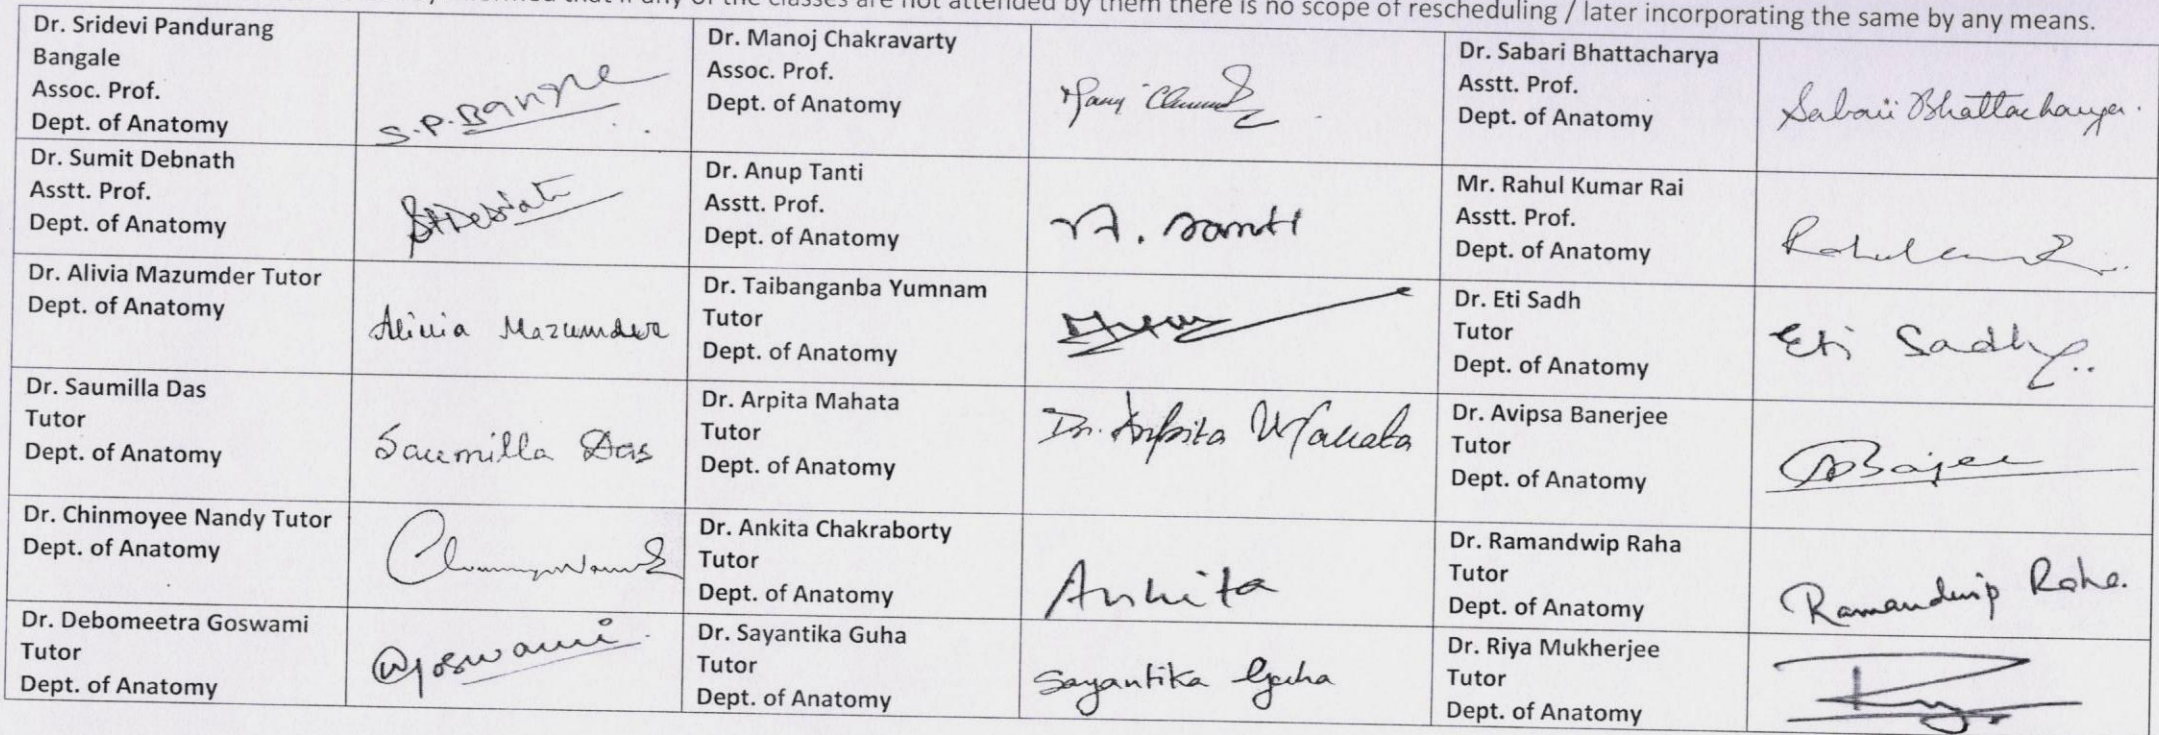 that if any of the classes are not attended by them there is no scope of rescheduling / later incorporating the same by any means.
Dr. Sridevi Pandurang
Bangale
Assoc. Prof.
Dept. of Anatomy
S.P.Bangale
Dr. Manoj Chakravarty
Assoc. Prof.
Dept. of Anatomy
Dr. Sabari Bhattacharya
Asstt. Prof.
Dept. of Anatomy
Sabari Bhattacharya.
Dr. Sumit Debnath
Asstt. Prof.
Dept. of Anatomy
Dr. Anup Tanti
Asstt. Prof.
Dept. of Anatomy
A. Tanti
Mr. Rahul Kumar Rai
Asstt. Prof.
Dept. of Anatomy
Dr. Alivia Mazumder Tutor
Dept. of Anatomy
Alivia Mazumder
Dr. Taibanganba Yumnam
Tutor
Dept. of Anatomy
Dr. Eti Sadh
Tutor
Dept. of Anatomy
Eti Sadh
Dr. Saumilla Das
Tutor
Dept. of Anatomy
Saumilla Das
Dr. Arpita Mahata
Tutor
Dept. of Anatomy
Dr. Arpita Mahata
Dr. Avipsa Banerjee
Tutor
Dept. of Anatomy
Dr. Chinmoyee Nandy Tutor
Dept. of Anatomy
Dr. Ankita Chakraborty
Tutor
Dept. of Anatomy
Ankita
Dr. Ramandwip Raha
Tutor
Dept. of Anatomy
Ramandwip Raha.
Dr. Debomeetra Goswami
Tutor
Dept. of Anatomy
Goswami
Dr. Sayantika Guha
Tutor
Dept. of Anatomy
Sayantika Guha
Dr. Riya Mukherjee
Tutor
Dept. of Anatomy